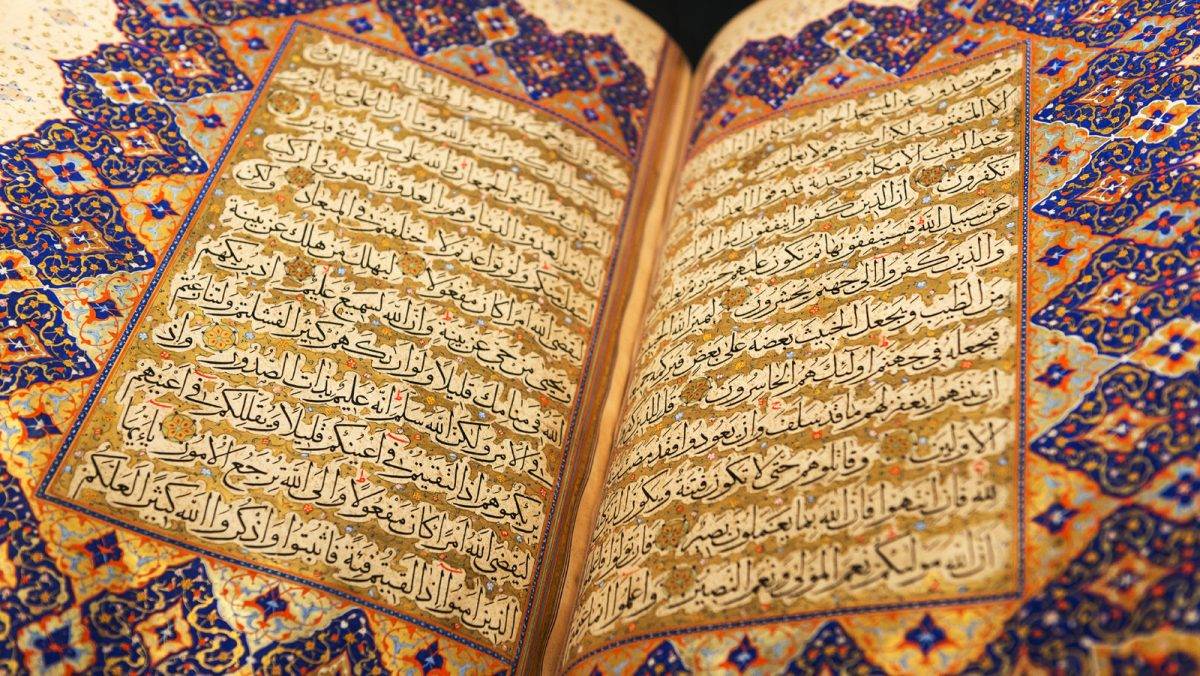 وهم يصدون عن المسجد الحرام وما
الا المتقون ولكن اكثرهم لا يعلمون وما
عند البيت الا مكاء وتصدية فذوقوا العذاب
تكفرون ان الذين كفروا ينفقون اموالهم
عن سبيل الله فسينفقونها ثم تكون عليهم حسرة
والذين كفروا الى جهنم يحشرون ليميز الله
من الطيب ويجعل الخبيث بعضه على بعض فيركمه
فيجعله في جهنم اولئك هم الخاسرون قل للذين
ان ينتهوا يغفر لهم ما قد سلف وان يعودوا فقد مضت
الاولين وقاتلوهم حتى لا تكون فتنة ويكون الدين
لله فان انتهوا فان الله بما يعملون بصير وان تولوا فاعلموا
ان الله موليكم نعم المولى ونعم النصير واعلموا انما غنمتم
بالله وما انزلنا على عبدنا يوم
الفرقان يوم التقى الجمعان والله على كل شيء قدير
بالعدوة الدنيا وهم بالعدوة القصوى والركب
منكم ولو تواعدتم لاختلفتم في الميعاد ولكن
ليقضي الله امرا كان مفعولا ليهلك من هلك عن بينة
ويحيى من حي عن بينة وان الله لسميع عليم اذ يريكهم
الله في منامك قليلا ولو اريكهم كثيرا لفشلتم ولتنازعتم
في الامر ولكن الله سلم انه عليم بذات الصدور واذ
يريكموهم اذ التقيتم في اعينكم قليلا ويقللكم في اعينهم
ليقضي الله امرا كان مفعولا والى الله ترجع الامور يا ايها
الذين امنوا اذا لقيتم فئة فاثبتوا واذكروا الله كثيرا لعلكم